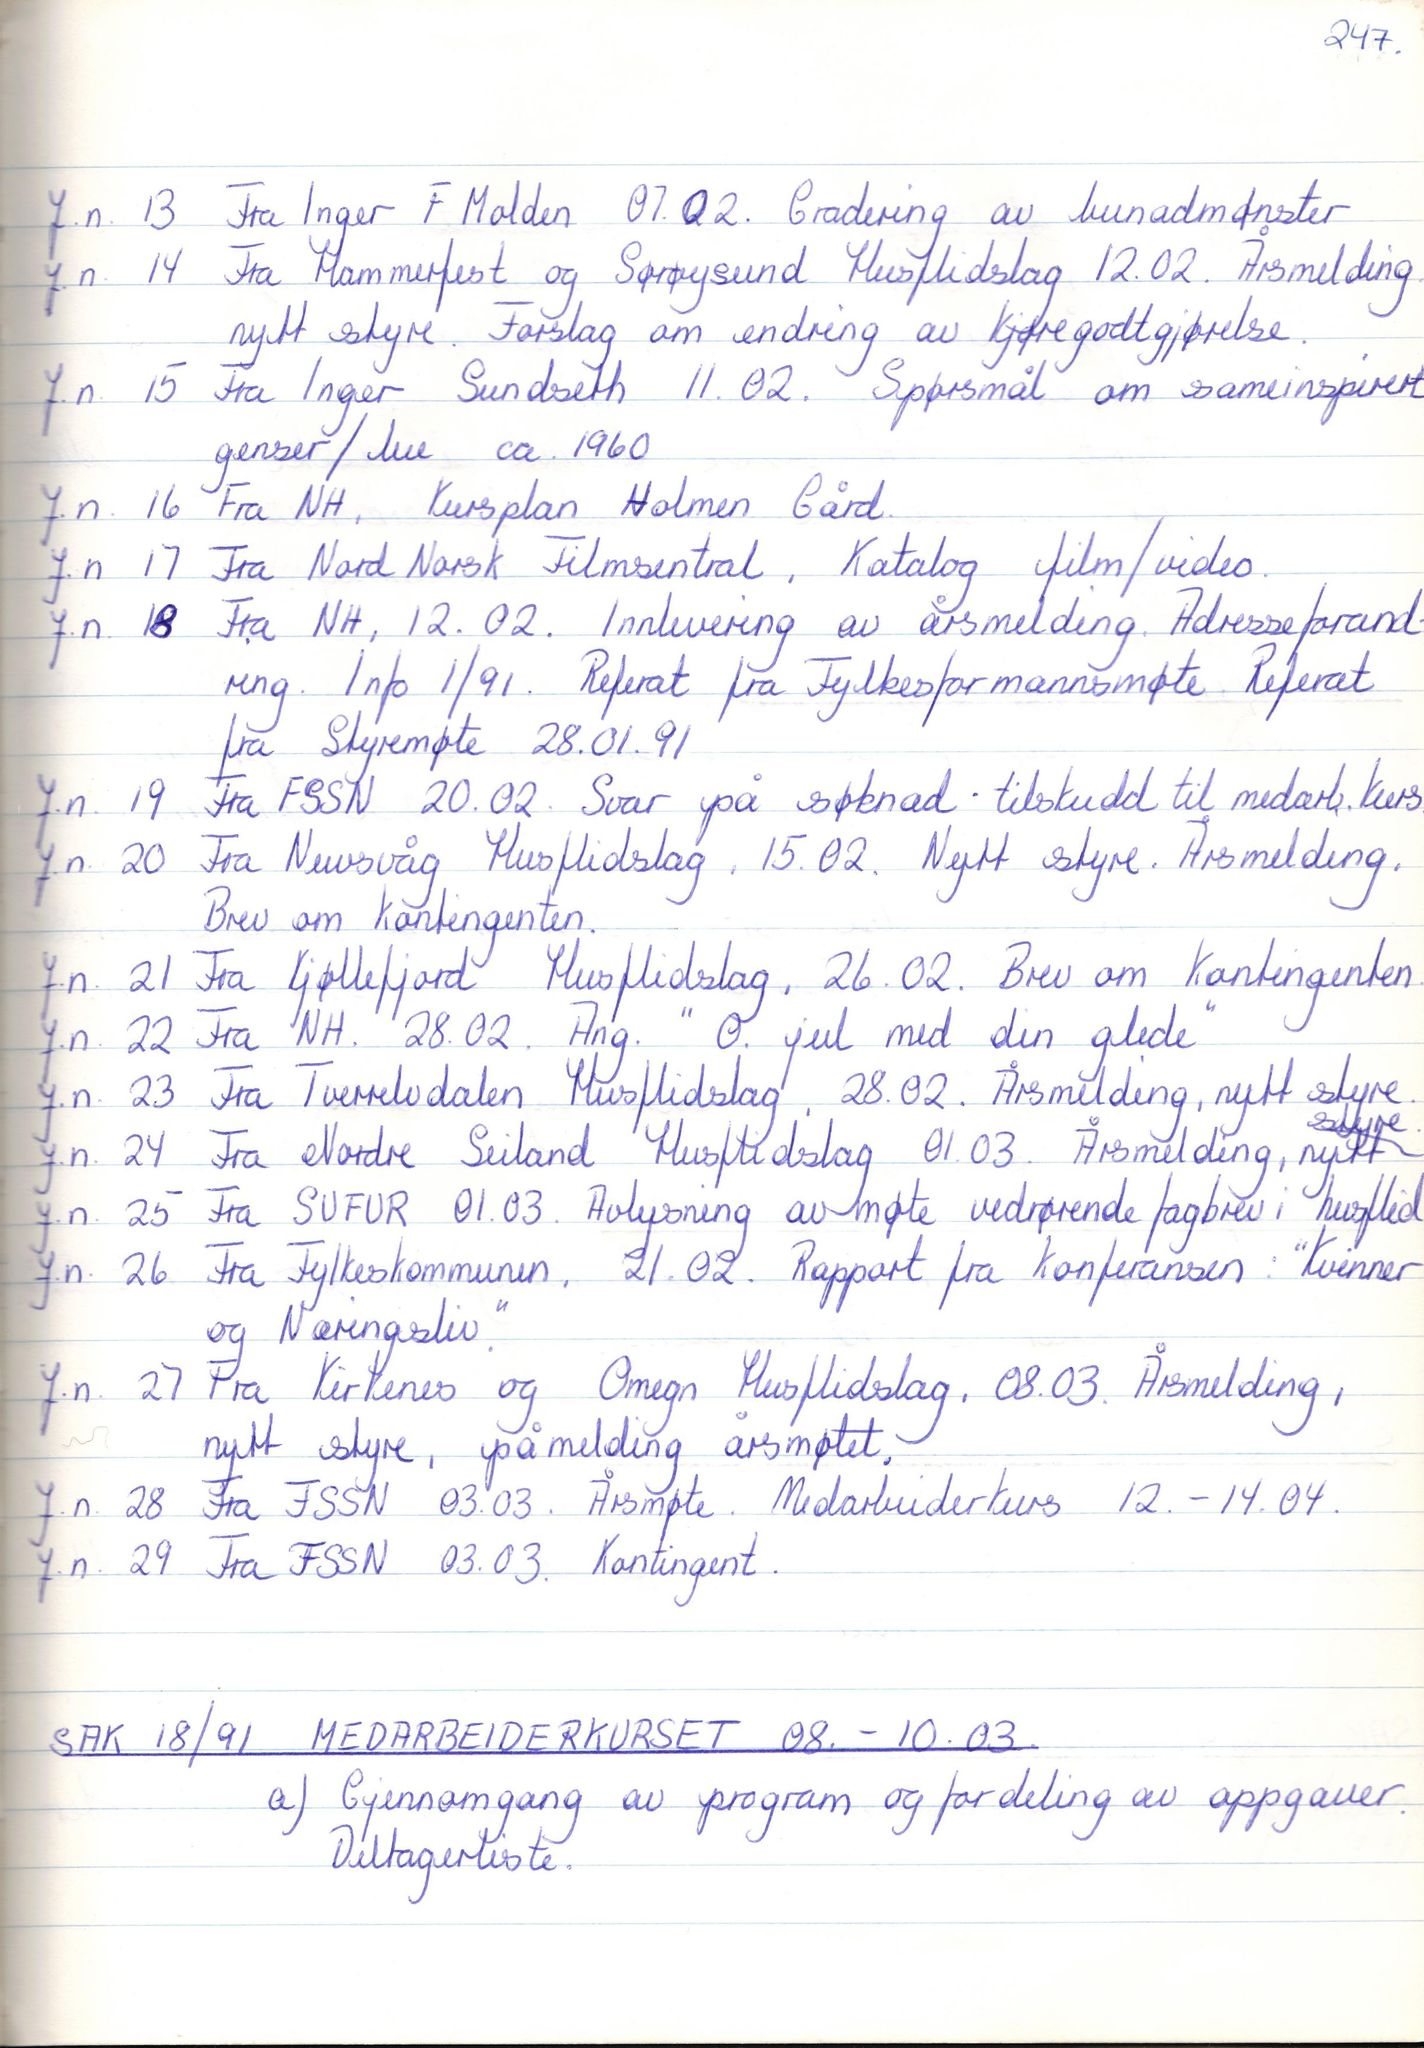 247.
J.n. 13 Fra Inger F Molden 07.02. Gradering av bunadmønster
J.n. 14 Fra Hammerfest og Sørøysund Husflidslag 12.02. Årsmelding.
nytt styre. Forslag om endring av kjøregodtgjørelse.
J.n. 15 Fra Inger Sundseth 11.02. Spørsmål om sameinspirert
genser/lue ca. 1960
J.n. 16 Fra NH, Kursplan Holmen Gård.
J.n 17 Fra Nord Norsk Filmsentral, Katalog film/video.
J.n. 18 Fra NH, 12.02. Innlevering av årsmelding. Adresseforand-
ring. Info 1/91. Referat fra Fylkesformannsmøte. Referat
fra Styremøte 28.01.91
J.n. 19 Fra FSSN 20.02. Svar på søknad - tilskudd til medarb. kurs
J.n. 20 Fra Neusvåg Husflidslag, 15.02. Nytt styre. Årsmelding.
Brev om kontingenten.
J.n. 21 Fra Kjøllefjord Husflidslag, 26.02. Brev om kontingenten.
J.n. 22 Fra NH. 28.02. Ang. "O. jul med din glede"
J.n. 23 Fra Tverrelvdalen Husflidslag, 28.02. Årsmelding, nytt styre.
styre.
J.n. 24 Fra Nordre Seiland Husflidslag 01.03. Årsmelding, nytt
J.n. 25 Fra SUFUR 01.03. Avlysning av møte vedrørende fagbrev i husflid
J.n. 26 Fra Fylkeskommunen, 21.02. Rapport fra konferansen: "Kvinner
og Næringsliv."
J.n. 27 Fra Kirkenes og Omegn Husflidslag, 08.03. Årsmelding,
nytt styre, påmelding årsmøtet.
J.n. 28 Fra FSSN 03.03. Årsmøte. Medarbeiderkurs 12. - 14.04.
J.n. 29 Fra FSSN 03.03. Kontingent.
SAK 18/91 MEDARBEIDERKURSET 08. - 10.03.
a) Gjennomgang av program og fordeling av oppgaver.
Deltagerliste.